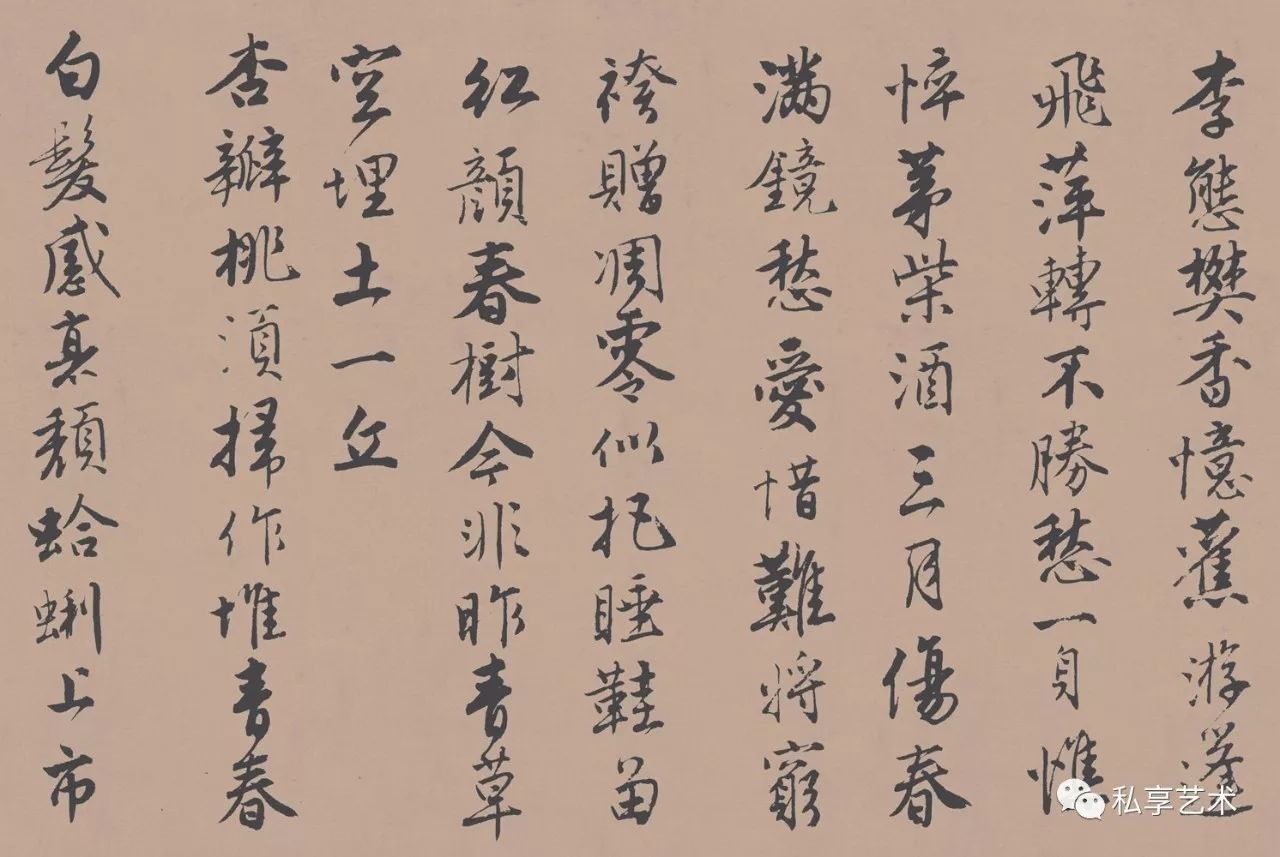 李態樊香憶舊游蓬
飛萍轉不勝愁一身憔
悴茅柴酒三月傷春
滿鏡愁愛惜難將窮
袴贈凋零似把睡鞋留
紅顏春樹今非昨青草
空埋土一丘
杏瓣桃湏掃作堆青春
白髮感衰頹蛤蜊上市
私享艺术